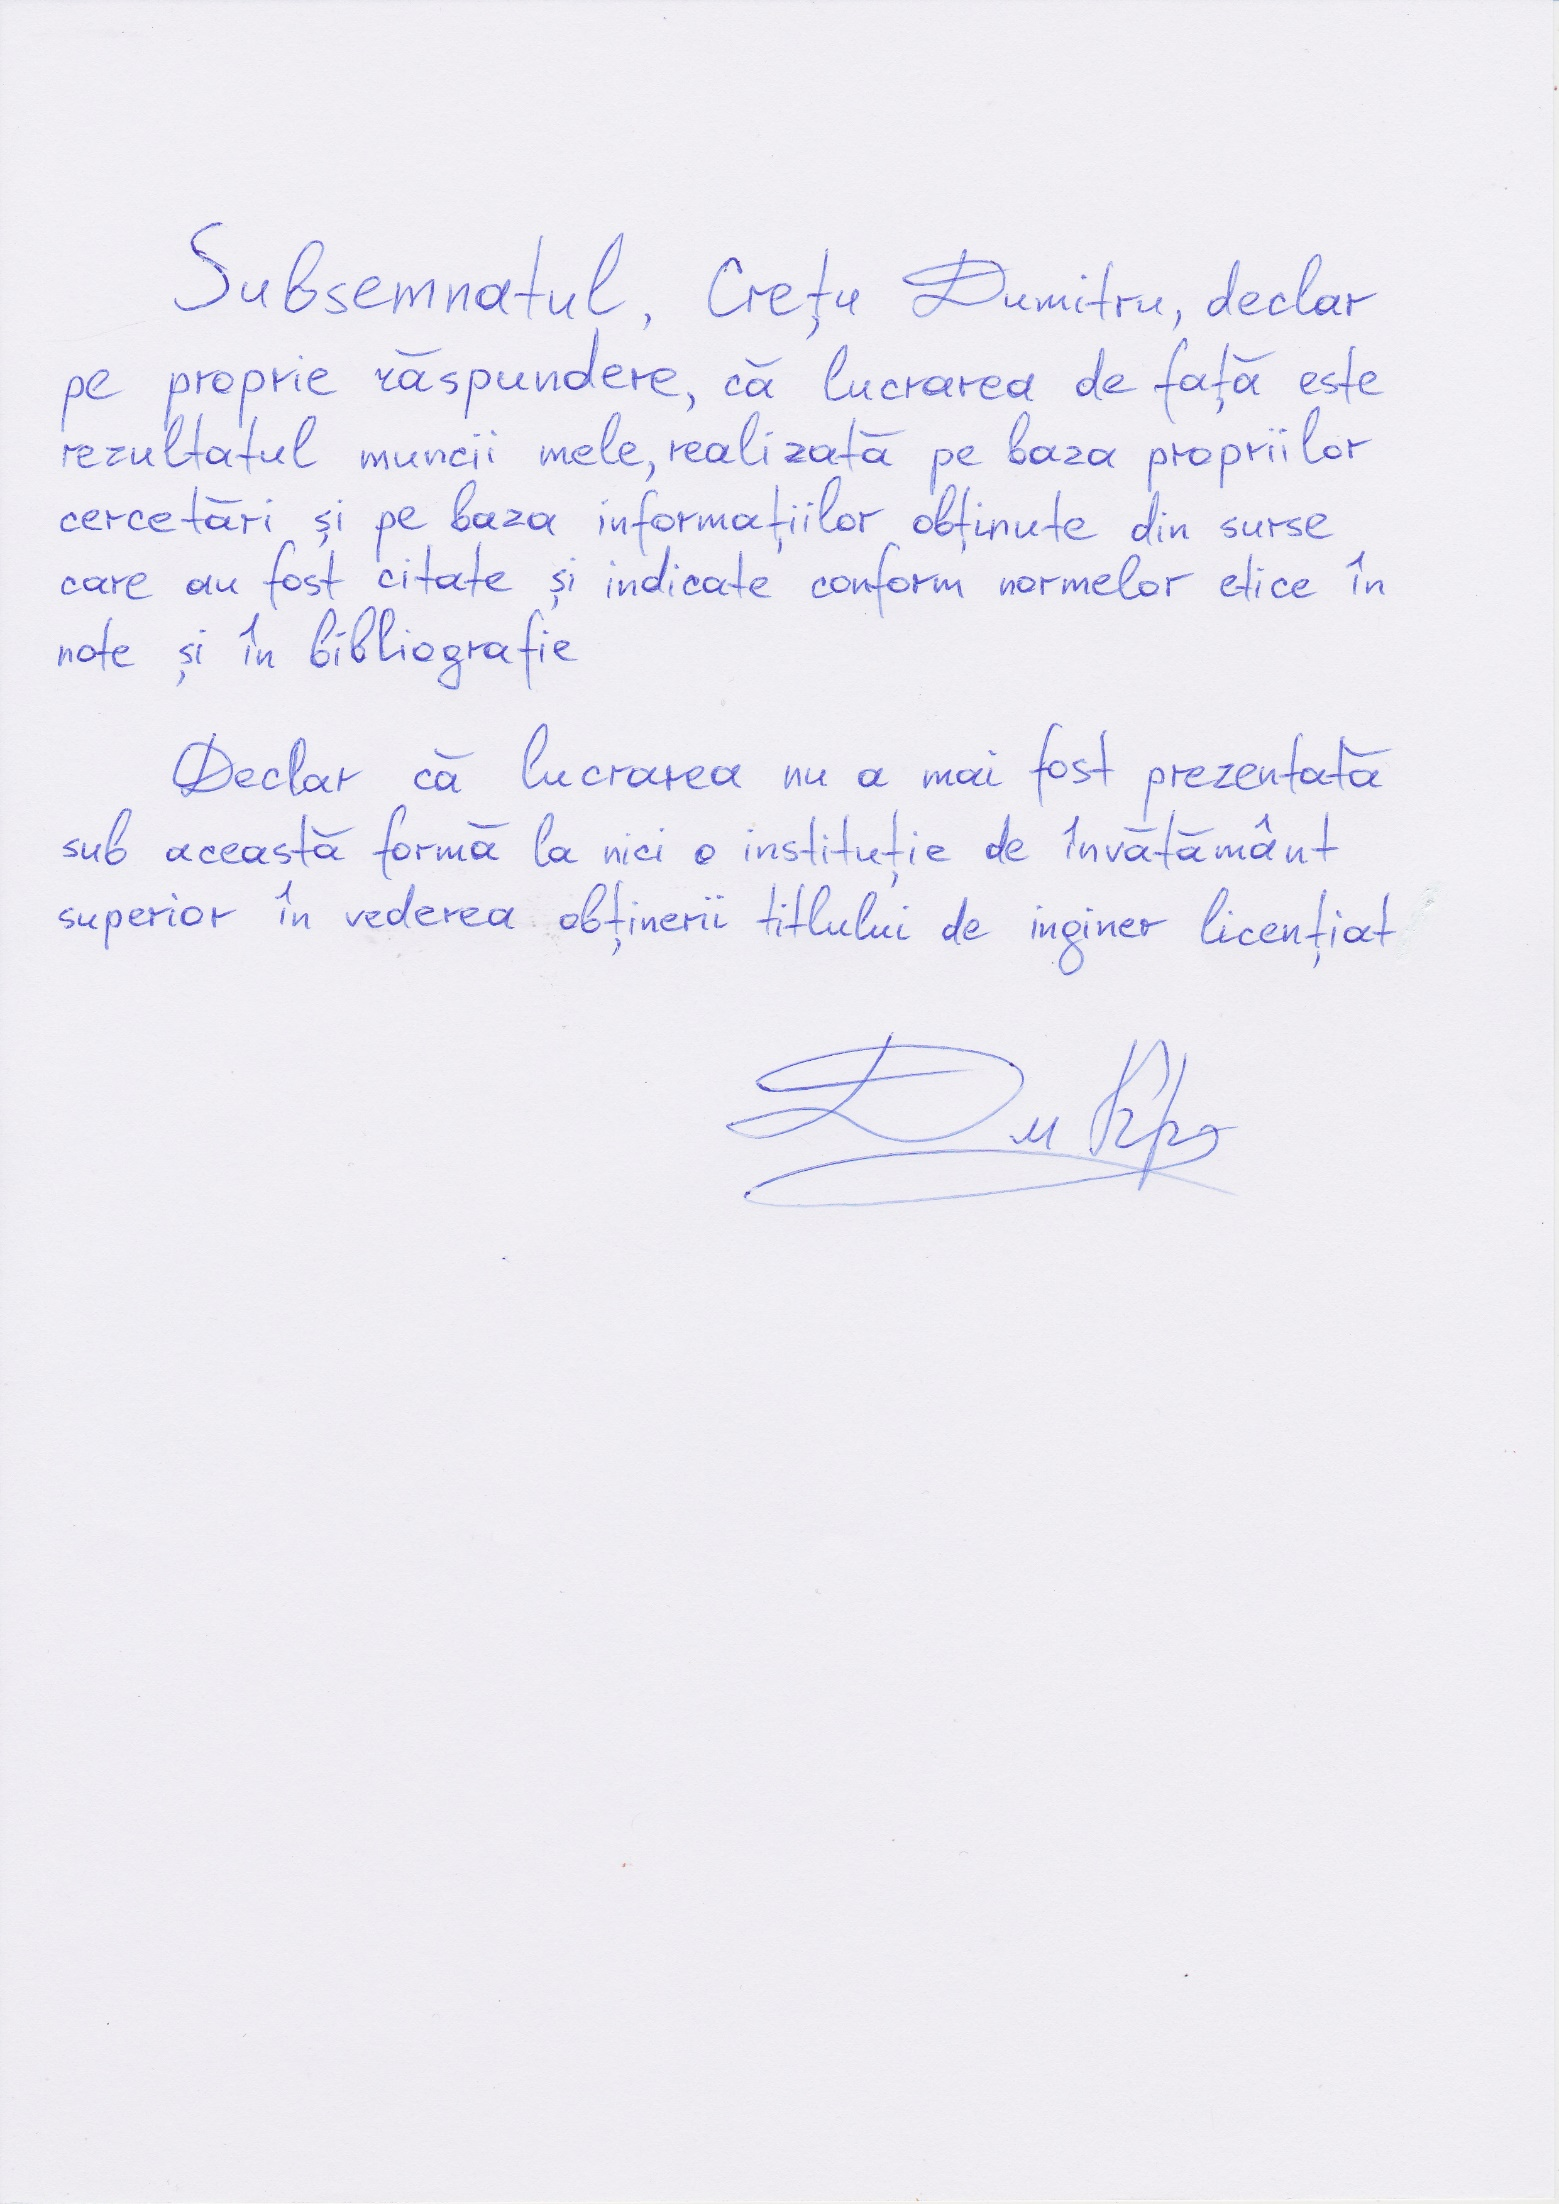 Subsemnatul, Crețu Dumitru, declar
pe proprie răspundere, că lucrarea de față este
rezultatul muncii mele, realizată pe baza propriilor
cercetări și pe baza informațiilor obținute din surse
care au fost citate și indicate conform normelor etice în
note și în bibliografie
Declar că lucrarea nu a mai fost prezentată
sub această formă la nici o instituție de învătământ
superior în vederea obținerii titlului de inginer licențiat